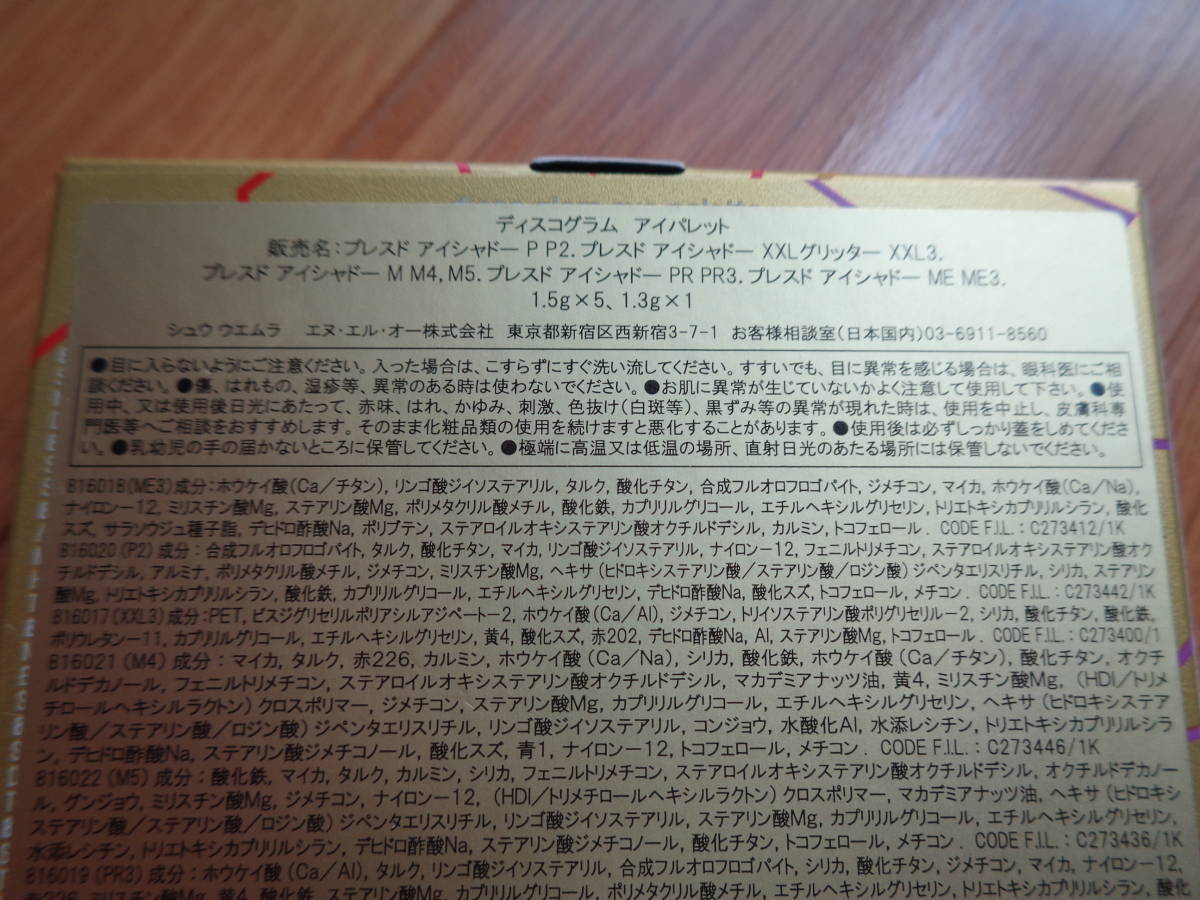 ディスコグラム アイパレット
販売名：プレスド アイシャドー P P2. プレスド アイシャドー XXLグリッター XXL3.
プレスド アイシャドー M M4, M5. プレスド アイシャドー PR PR3. プレスド アイシャドー ME ME3.
1.5g×5、1.3g×1
シュウ ウエムラ エヌ・エル・オー株式会社 東京都新宿区西新宿3-7-1 お客様相談室(日本国内)03-6911-8560
●目に入らないようにご注意ください。入った場合は、こすらずにすぐ洗い流してください。すすいでも、目に異常を感じる場合は、眼科医にご相
談ください。●傷、はれもの、湿疹等、異常のある時は使わないでください。●お肌に異常が生じていないかよく注意して使用して下さい。●使
用中、又は使用後日光にあたって、赤味、はれ、かゆみ、刺激、色抜け(白斑等)、黒ずみ等の異常が現れた時は、使用を中止し、皮膚科専
門医等へご相談をおすすめします。そのまま化粧品類の使用を続けますと悪化することがあります。●使用後は必ずしっかり蓋をしめてくださ
い。●乳幼児の手の届かないところに保管してください。●極端に高温又は低温の場所、直射日光のあたる場所には保管しないでください。
816018(ME3)成分：ホウケイ酸(Ca／チタン), リンゴ酸ジイソステアリル, タルク, 酸化チタン, 合成フルオロフロゴパイト, ジメチコン, マイカ, ホウケイ酸(Ca／Na),
ナイロン－12, ミリスチン酸Mg, ステアリン酸Mg, ポリメタクリル酸メチル, 酸化鉄, カプリリルグリコール, エチルヘキシルグリセリン, トリエトキシカプリリルシラン, 酸化
スズ, サラソウジュ種子脂, デヒドロ酢酸Na, ポリブテン, ステアロイルオキシステアリン酸オクチルドデシル, カルミン, トコフェロール . CODE F.I.L. : C273412/1K
816020 (P2) 成分：合成フルオロフロゴパイト, タルク, 酸化チタン, マイカ, リンゴ酸ジイソステアリル, ナイロン－12, フェニルトリメチコン, ステアロイルオキシステアリン酸オク
チルドデシル, アルミナ, ポリメタクリル酸メチル, ジメチコン, ミリスチン酸Mg, ヘキサ (ヒドロキシステアリン酸／ステアリン酸／ロジン酸) ジペンタエリスリチル, シリカ, ステアリン
酸Mg, トリエトキシカプリリルシラン, 酸化鉄, カプリリルグリコール, エチルヘキシルグリセリン, デヒドロ酢酸Na, 酸化スズ, トコフェロール, メチコン . CODE F.I.L. : C273442/1K
816017 (XXL3) 成分：PET, ビスジグリセリルポリアシルアジペート－2, ホウケイ酸 (Ca／Al), ジメチコン, トリイソステアリン酸ポリグリセリル－2, シリカ, 酸化チタン, 酸化鉄,
ポリウレタン－11, カプリリルグリコール, エチルヘキシルグリセリン, 黄4, 酸化スズ, 赤202, デヒドロ酢酸Na, Al, ステアリン酸Mg, トコフェロール . CODE F.I.L. : C273400/1
816021 (M4) 成分：マイカ, タルク, 赤226, カルミン, ホウケイ酸 (Ca／Na), シリカ, 酸化鉄, ホウケイ酸 (Ca／チタン), 酸化チタン, オクチ
ルドデカノール, フェニルトリメチコン, ステアロイルオキシステアリン酸オクチルドデシル, マカデミアナッツ油, 黄4, ミリスチン酸Mg, (HDI／トリメ
チロールヘキシルラクトン) クロスポリマー, ジメチコン, ステアリン酸Mg, カプリリルグリコール, エチルヘキシルグリセリン, ヘキサ (ヒドロキシステア
リン酸／ステアリン酸／ロジン酸) ジペンタエリスリチル, リンゴ酸ジイソステアリル, コンジョウ, 水酸化Al, 水添レシチン, トリエトキシカプリリルシラ
ン, デヒドロ酢酸Na, ステアリン酸ジメチコノール, 酸化スズ, 青1, ナイロン－12, トコフェロール, メチコン . CODE F.I.L. : C273446/1K
816022 (M5) 成分：酸化鉄, マイカ, タルク, カルミン, シリカ, フェニルトリメチコン, ステアロイルオキシステアリン酸オクチルドデシル, オクチルドデカノー
ル, グンジョウ, ミリスチン酸Mg, ジメチコン, ナイロン－12, (HDI／トリメチロールヘキシルラクトン) クロスポリマー, マカデミアナッツ油, ヘキサ (ヒドロキシ
ステアリン酸／ステアリン酸／ロジン酸) ジペンタエリスリチル, リンゴ酸ジイソステアリル, ステアリン酸Mg, カプリリルグリコール, エチルヘキシルグリセリン,
水添レシチン, トリエトキシカプリリルシラン, デヒドロ酢酸Na, ステアリン酸ジメチコノール, 酸化チタン, トコフェロール, メチコン . CODE F.I.L. : C273436/1K
816019 (PR3) 成分：ホウケイ酸 (Ca／Al), タルク, リンゴ酸ジイソステアリル, 合成フルオロフロゴパイト, シリカ, 酸化チタン, ジメチコン, マイカ, ナイロン－12,
赤226, ミリスチン酸Mg, 黄4, 酸化鉄, ステアリン酸Mg, カプリリルグリコール, ポリメタクリル酸メチル, エチルヘキシルグリセリン, トリエトキシカプリリルシラン, 酸化